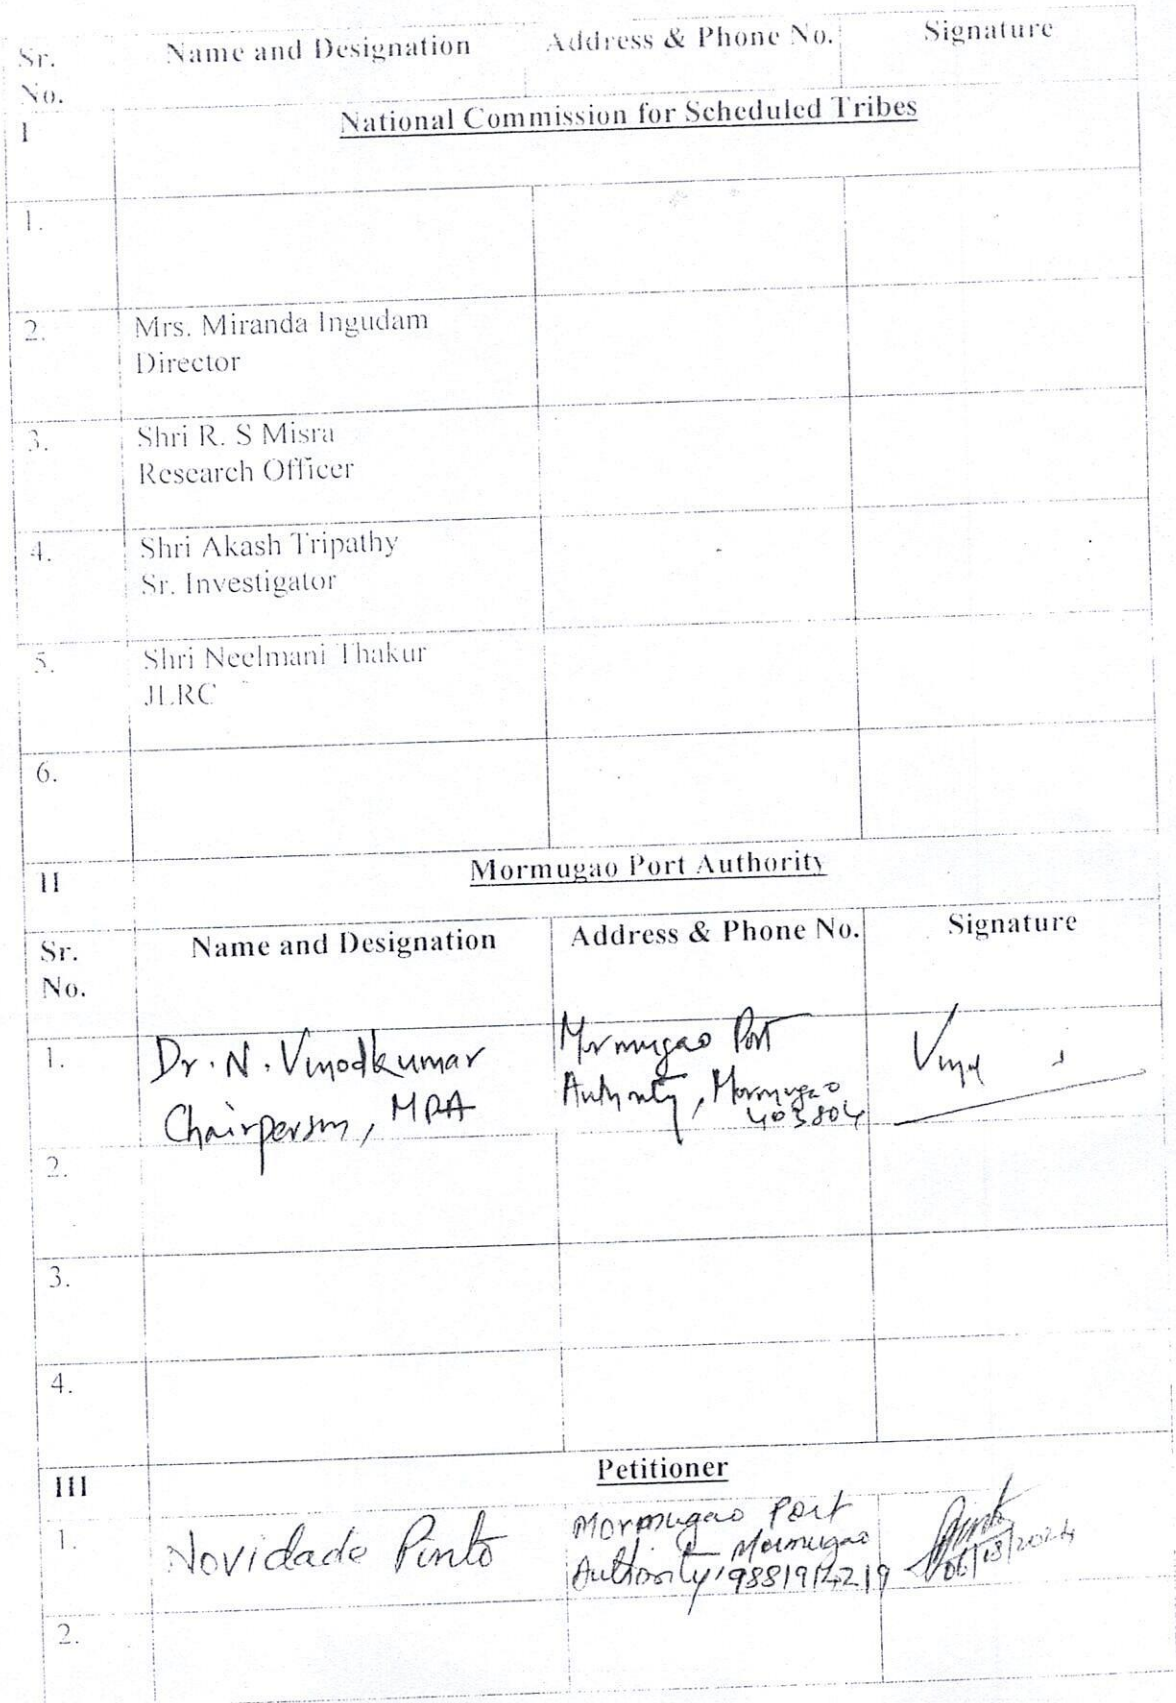 Sr. No. Name and Designation Address & Phone No. Signature
I National Commission for Scheduled Tribes
1.
2. Mrs. Miranda Ingudam
Director
3. Shri R. S Misra
Research Officer
4. Shri Akash Tripathy
Sr. Investigator
5. Shri Neelmani Thakur
JLRC
6.
II Mormugao Port Authority
Sr. No. Name and Designation Address & Phone No. Signature
1. Dr. N. Vinodkumar Mormugao Port
Chairperson, MPA Authority, Mormugao
403804
2.
3.
4.
III Petitioner
1. Novidade Pinto Mormugao Port
Authority, Mormugao
2.